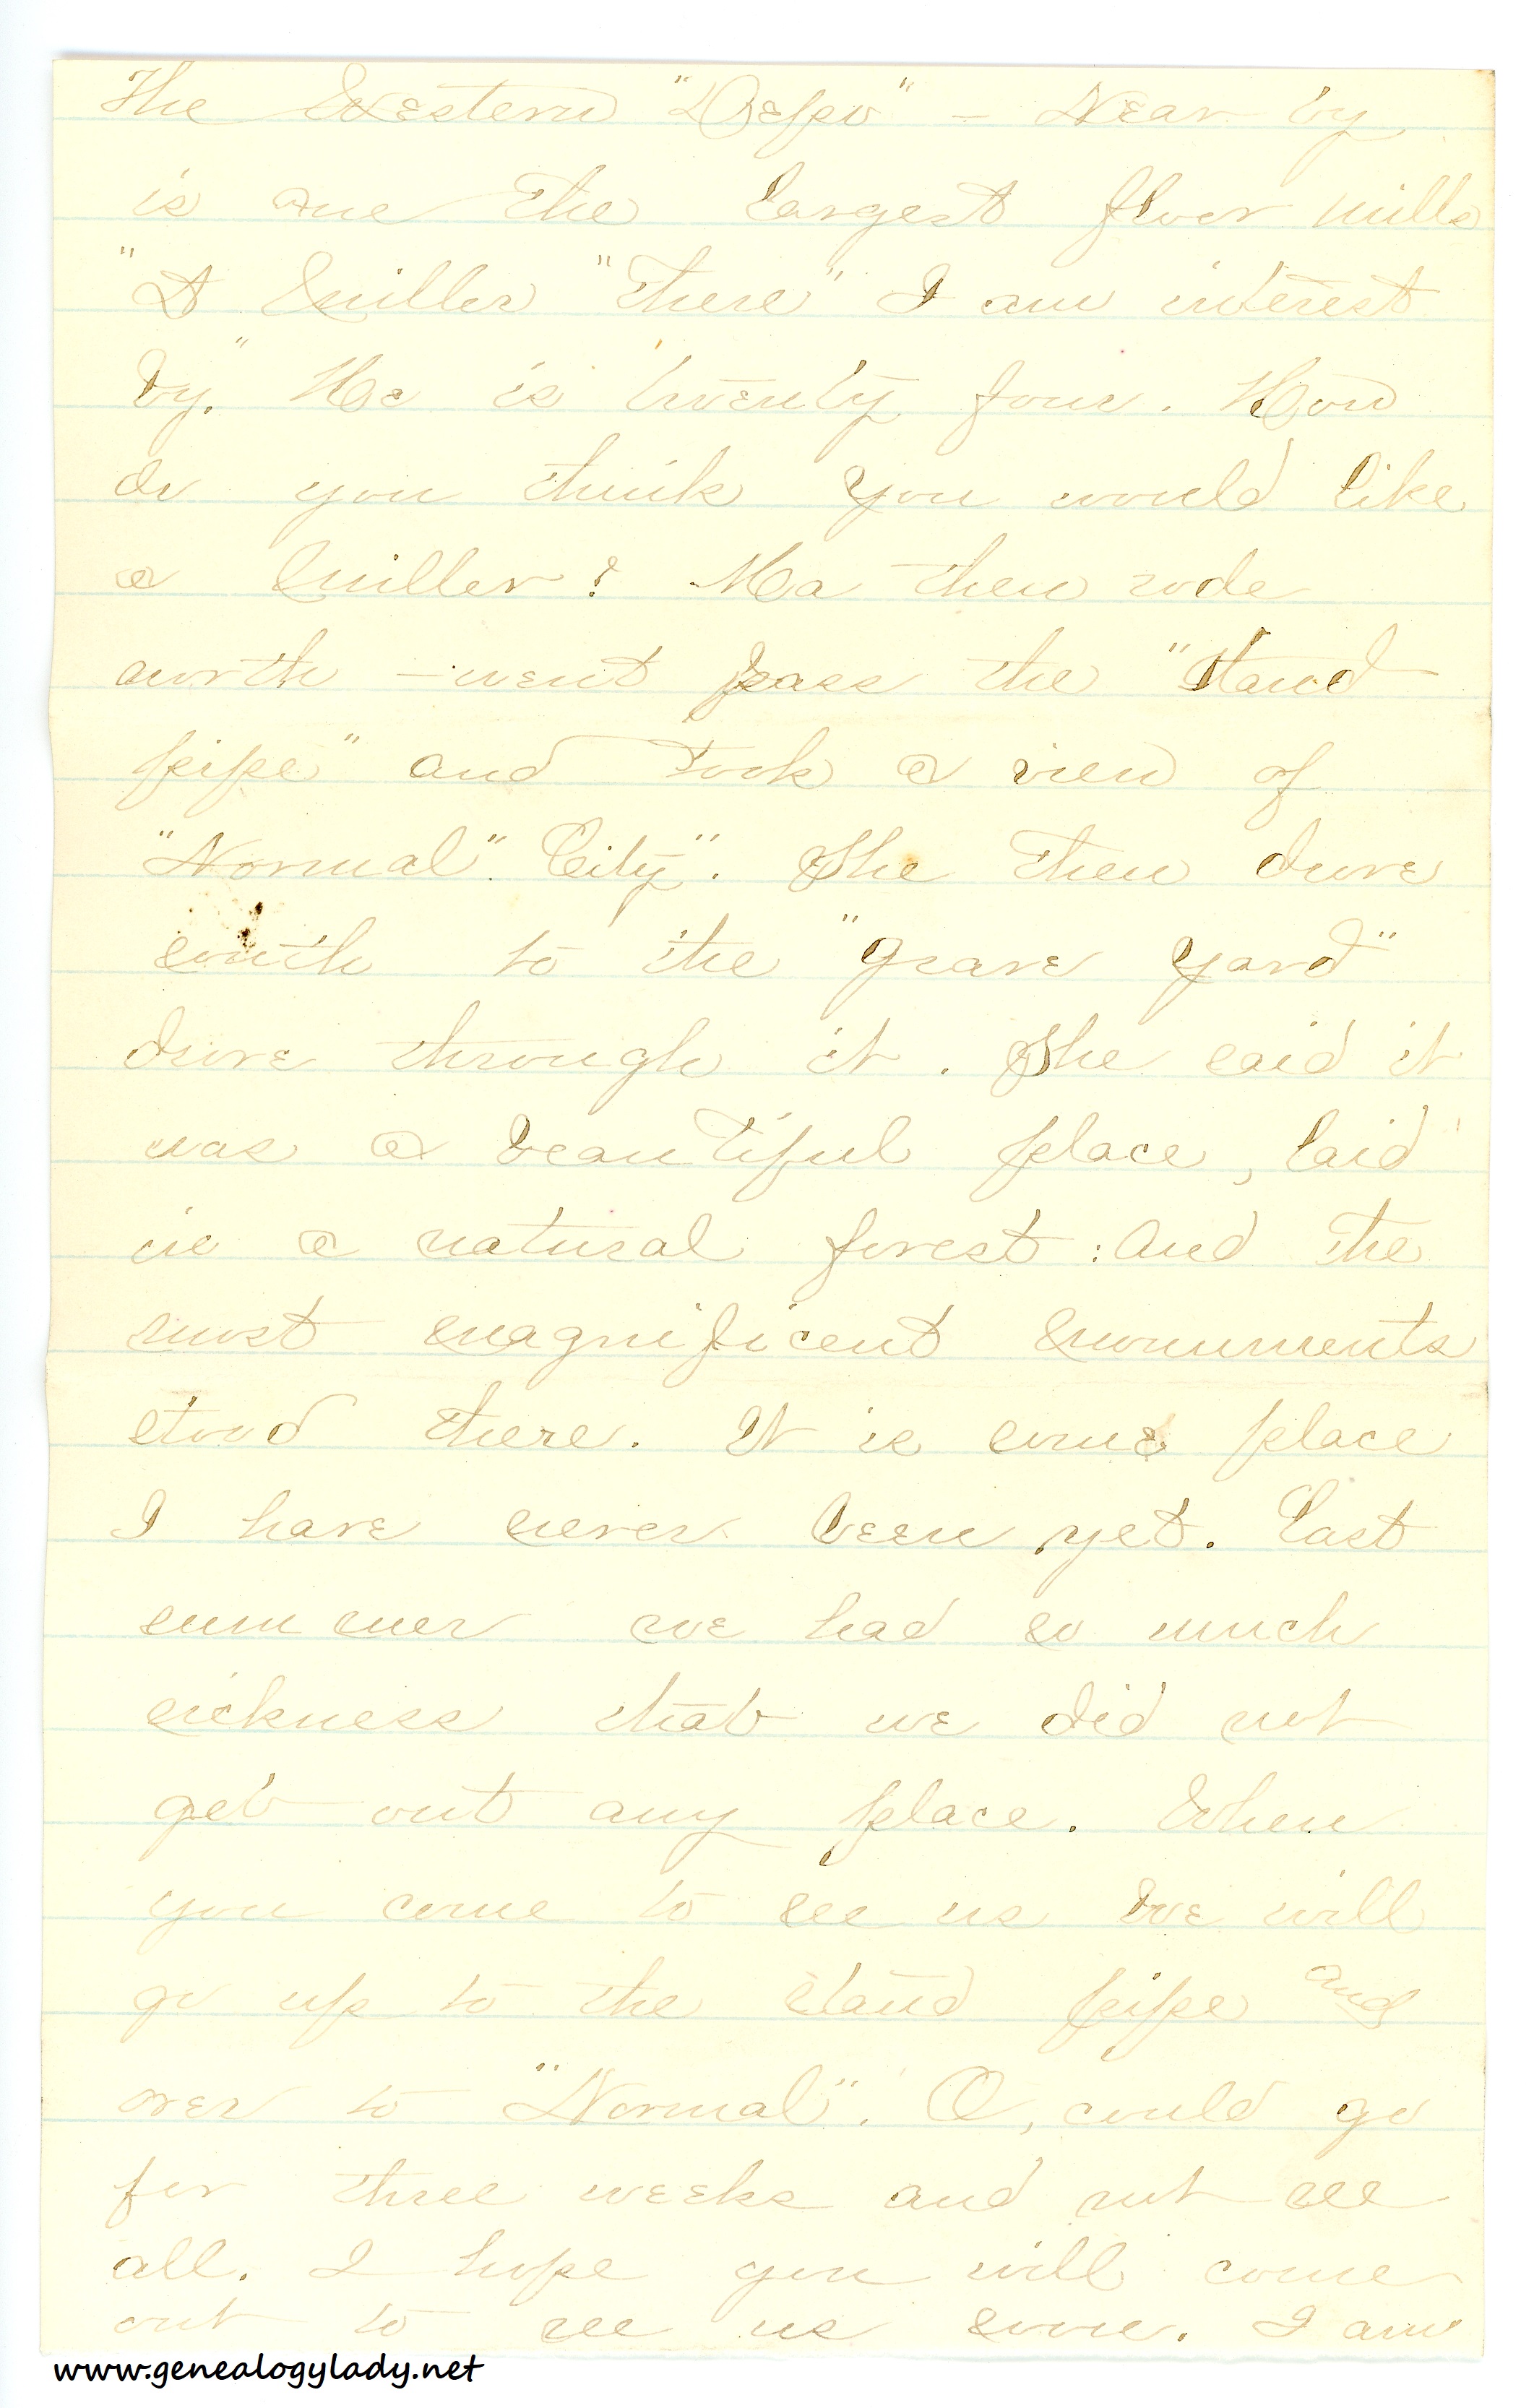 The Western "Depo" - Near by
is one the largest floor mills
"A Miller "There" I am interest
by." He is twenty four. How
do you think you would like
a Miller? Ma then rode
north - went pass the "Stand
pipe" and took a view of
"Normal". City". She then drove
south to the "grave yard"
drove through it. She said it
was a beautiful place, laid
in a natural forest: And the
most magnificent monuments
stood there. It is some place
I have never been yet. Last
summer we had so much
sickness that we did not
get out any place. When
you come to see us we will
go up to the stand pipe and
over to "Normal". O, could go
for three weeks and not see
all. I hope you will come
out to see us soon. I am
www.genealogylady.net